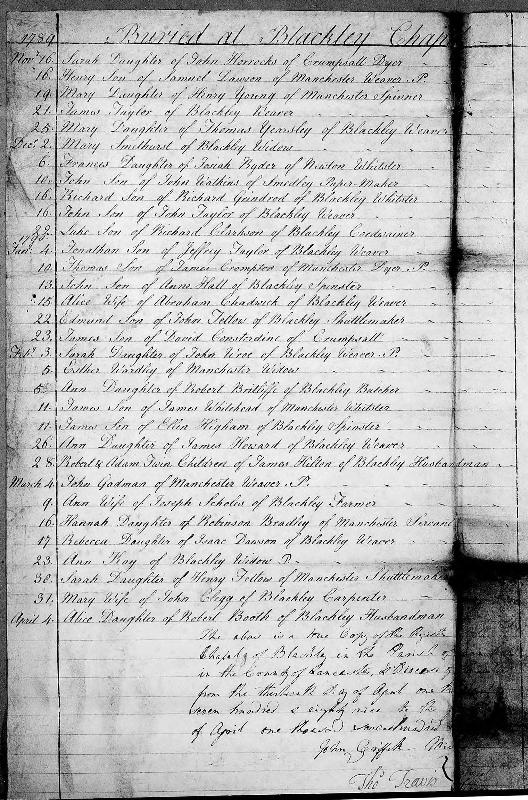 1789 Buried at Blackley Chap
Novr 16 Sarah Daughter of John Horrocks of Crumpsall Dyer
16. Henry Son of Samuel Dawson of Manchester Weaver P.
19 Mary Daughter of Henry Young of Manchester Spinner
21. James Taylor of Blackley Weaver
25. Mary Daughter of Thomas Yearnsley of Blackley Weaver
Decr 2. Mary Smithurst of Blackley Widow
6. Frances Daughter of Josiah Ryder of Newton Whitster
10. John Son of John Watkins of Smedley Paper Maker
16. Richard Son of Richard Gundrod of Blackley Whitster
16 John Son of John Taylor of Blackley Weaver
Luke Son of Richard Clarkson of Blackley Cordwainer
1790
Jany 4. Jonathan Son of Jeffrey Taylor of Blackley Weaver
10. Thomas Son of James Crompton of Manchester Dyer P.
13. John Son of Anne Hall of Blackley Spinster
15 Alice Wife of Abraham Chadwick of Blackley Weaver
22. Edmund Son of John Fellow of Blackley Shuttlemaker
23. James Son of David Consterdine of Crumpsall
Feby 3. Sarah Daughter of John Wroe of Blackley Weaver P.
5. Esther Wardley of Manchester Widow
5 Ann Daughter of Robert of Blackley Butcher
11. James Son of James Whitehead of Manchester Whitster
11. James Son of Ellen Higham of Blackley Spinster
26. Ann Daughter of James Howard of Blackley Weaver
28. Robert & Adam Twin Children of James Hilton of Blackley Husbandman
March 4. John Gadman of Manchester Weaver P.
9. Ann Wife of Joseph Scholes of Blackley Farmer
16. Hannah Daughter of Robinson Bradley of Manchester Servant
17. Rebecca Daughter of Isaac Dawson of Blackley Weaver
23. Ann Kay of Blackley Widow P.
30. Sarah Daughter of Henry Fellows of Manchester Shuttlemaker
31. Mary Wife of John Clegg of Blackley Carpenter
April 4. Alice Daughter of Robert Booth of Blackley Husbandman
The above is a true Copy of the
Chapelry of Blackley in the Parish of
in the County of Lancaster, & Diocese of
from the thirteenth Day of April one
seven hundred & eighty nine to the
of April one thousand seven hundred
John Griffith
Thos Travis